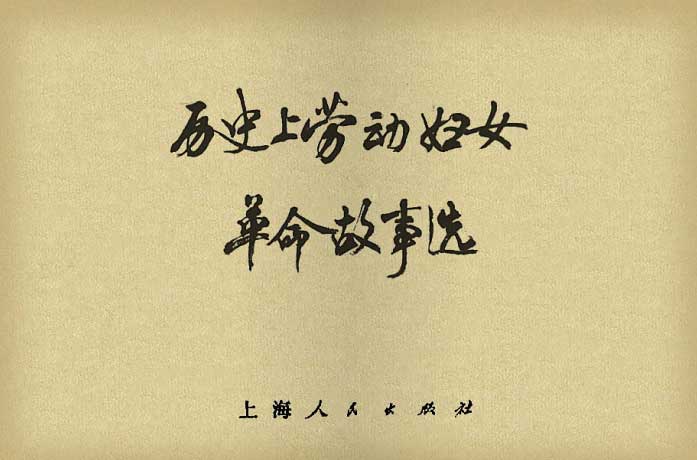 历史上劳动妇女
革命故事选
上海人民出版社